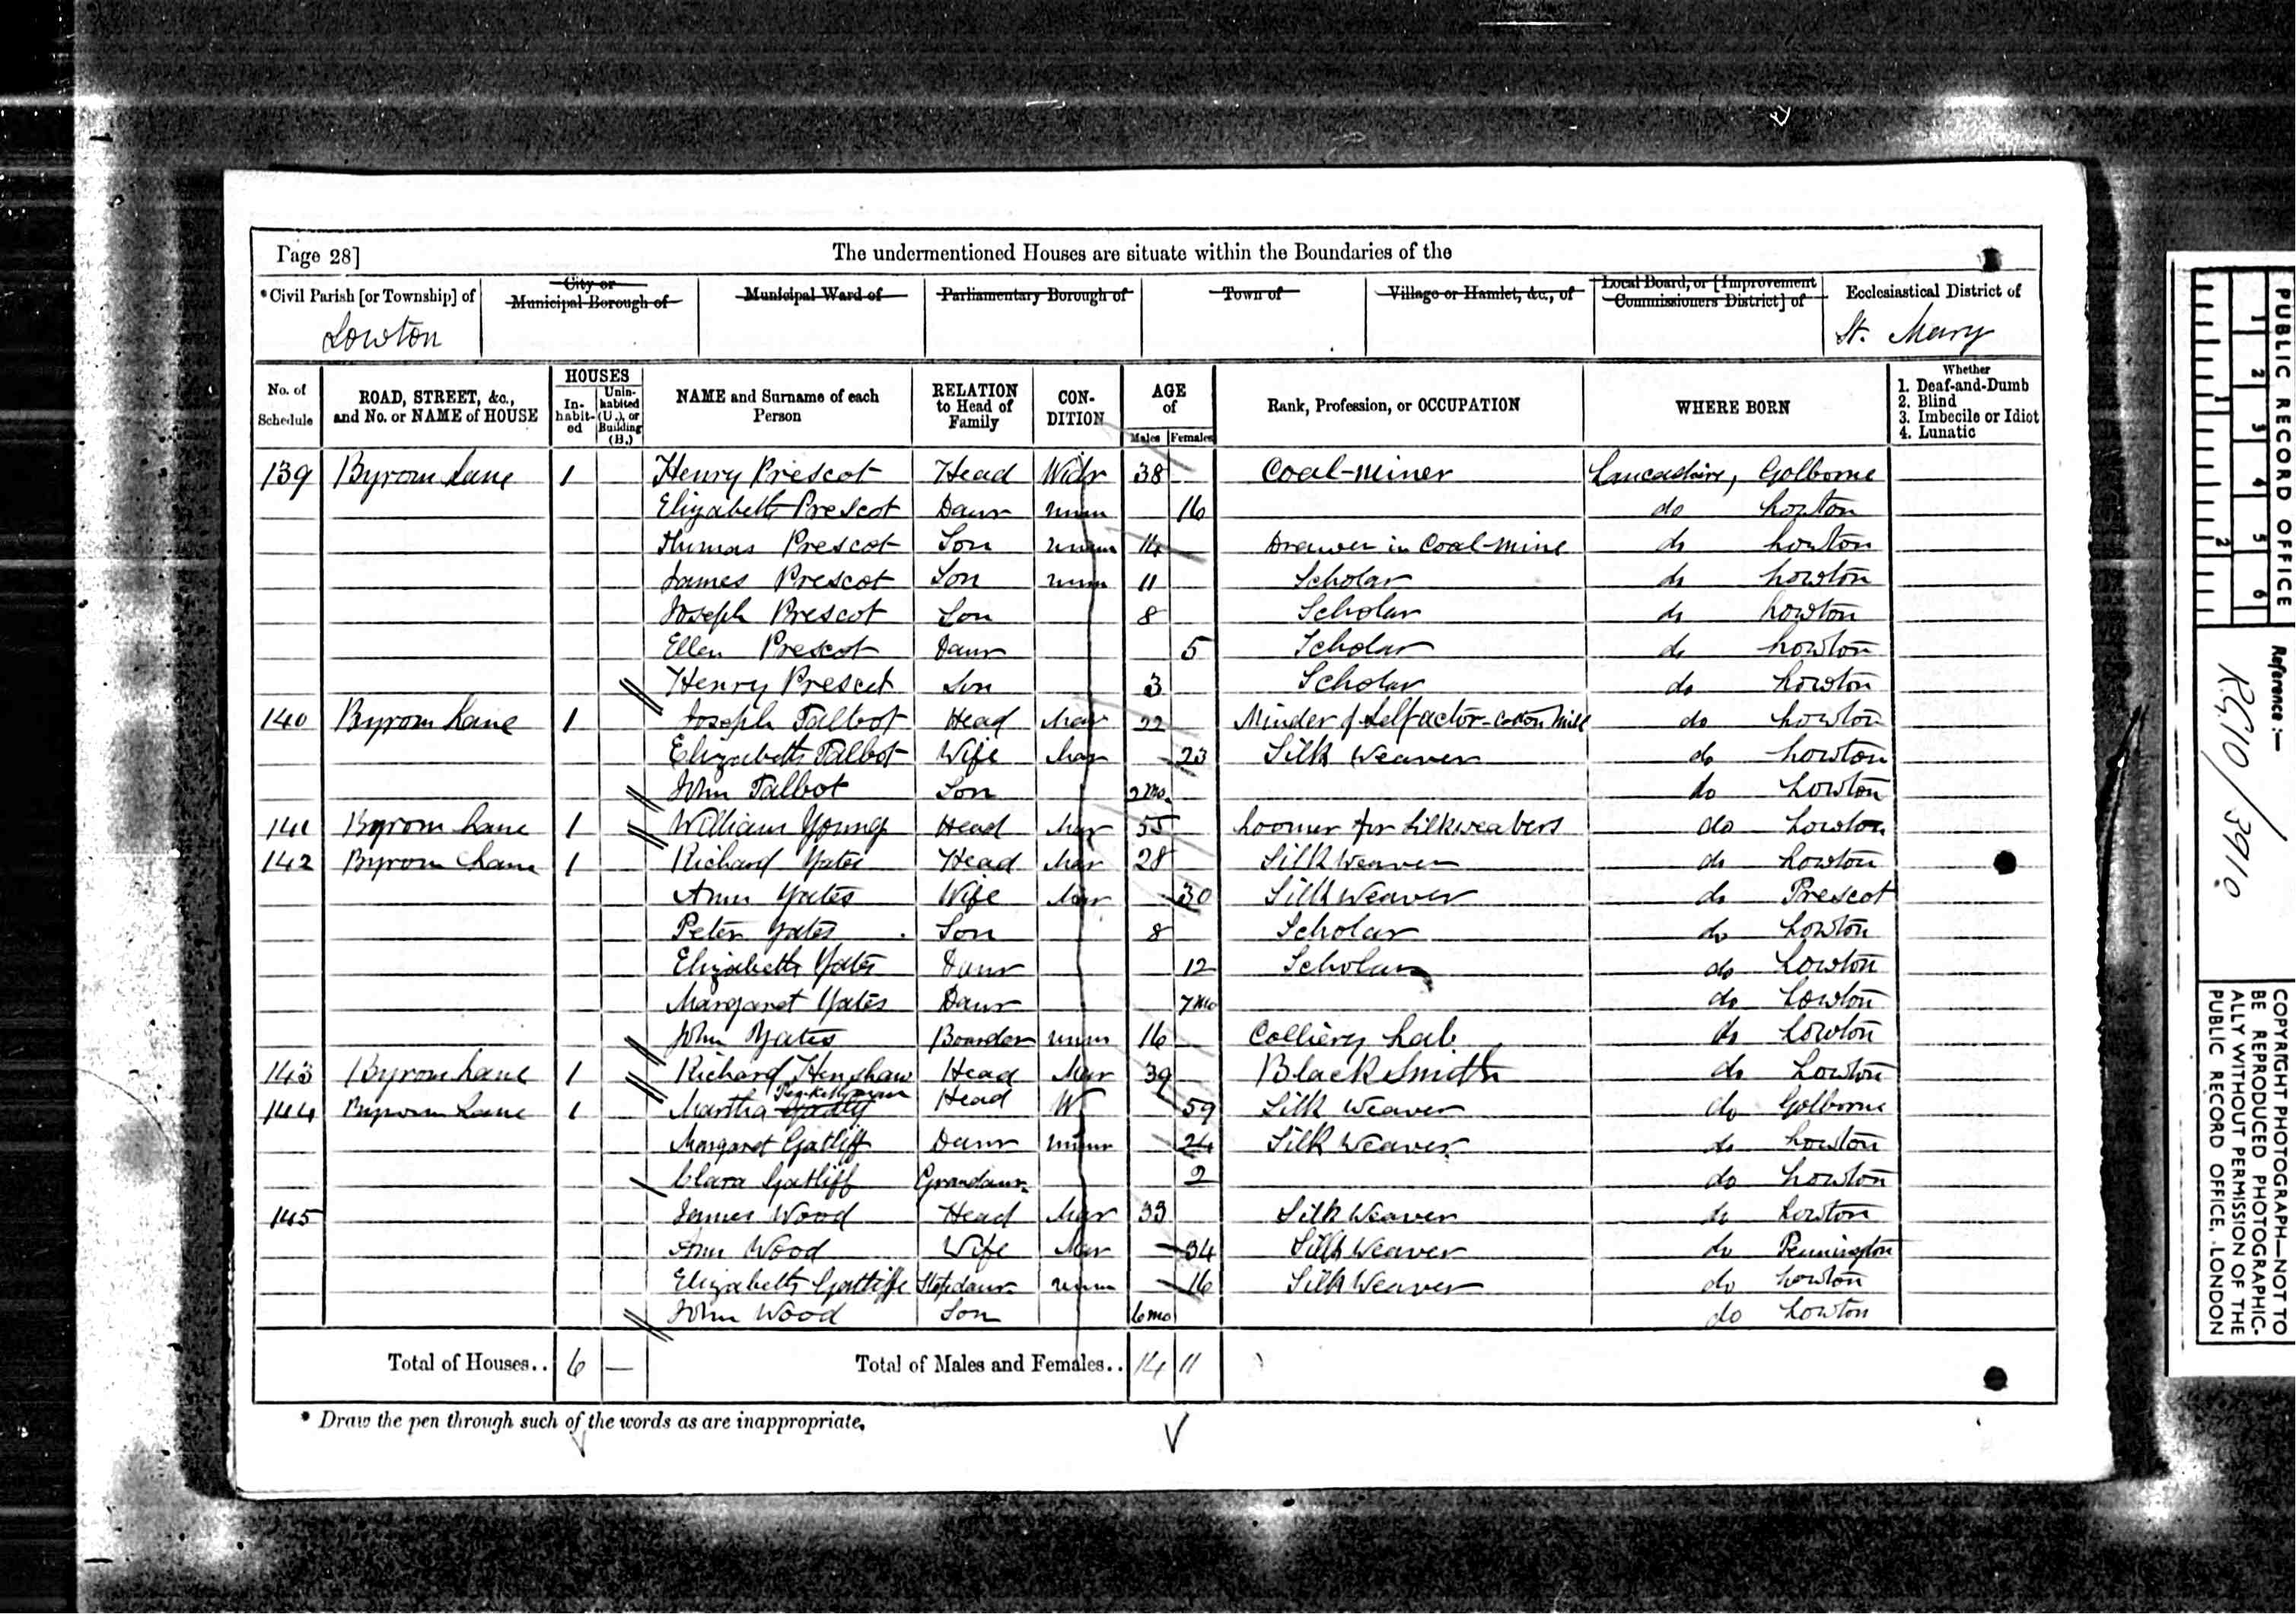 Page 28]
The undermentioned Houses are situate within the Boundaries of the
*Civil Parish [or Township] of
City or Municipal Borough of
Municipal Ward of
Parliamentary Borough of
Town of
Village or Hamlet, &c., of
Local Board, or [Improvement Commissioners District] of
Ecclesiastical District of
Lowton
St. Mary
No. of Schedule
ROAD, STREET, &c., and No. or NAME of HOUSE
HOUSES
In-habit-ed
Unin-habited (U.), or Building (B.)
NAME and Surname of each Person
RELATION to Head of Family
CON-DITION
AGE of
Males
Females
Rank, Profession, or OCCUPATION
WHERE BORN
Whether
1. Deaf-and-Dumb
2. Blind
3. Imbecile or Idiot
4. Lunatic
139 Byrom Lane 1 Henry Prescot Head Widr 38 Coal-miner Lancashire, Golborne
Elizabeth Prescot Daur unm 16 do Lowton
Thomas Prescot Son unm 14 Drawer in Coal-mine do Lowton
James Prescot Son unm 11 Scholar do Lowton
Joseph Prescot Son 8 Scholar do Lowton
Ellen Prescot Daur 5 Scholar do Lowton
Henry Prescot Son 3 Scholar do Lowton
140 Byrom Lane 1 Joseph Talbot Head Mar 22 Minder of Selfactor-Cotton Mill do Lowton
Elizabeth Talbot Wife Mar 23 Silk Weaver do Lowton
John Talbot Son 2mo. do Lowton
141 Byrom Lane 1 William Young Head Mar 55 Loomer for Silkweavers do Lowton
142 Byrom Lane 1 Richard Yates Head Mar 28 Silk Weaver do Lowton
Ann Yates Wife Mar 30 Silk Weaver do Prescot
Peter Yates Son 8 Scholar do Lowton
Elizabeth Yates Daur 12 Scholar do Lowton
Margaret Yates Daur 7mo do Lowton
John Yates Boarder unm 16 Colliery Lab do Lowton
143 Byrom Lane 1 Richard Henshaw Head Mar 39 Black Smith do Lowton
144 Byrom Lane 1 Martha Head W 59 Silk Weaver do Golborne
Margaret Gatliff Daur unm 24 Silk Weaver do Lowton
Clara Gatliff Grandaur. 2 do Lowton
145 James Wood Head Mar 33 Silk Weaver do Lowton
Ann Wood Wife Mar 34 Silk Weaver do Pennington
Elizabeth Gatliffe Stepdaur. unm 16 Silk Weaver do Lowton
John Wood Son 6mo do Lowton
Total of Houses.. 6 — Total of Males and Females.. 14 11
* Draw the pen through such of the words as are inappropriate.
PUBLIC RECORD OFFICE
1 2 3 4 5 6
1 2
Reference :-
RG10/3910
COPYRIGHT PHOTOGRAPH—NOT TO
BE REPRODUCED PHOTOGRAPHIC-
ALLY WITHOUT PERMISSION OF THE
PUBLIC RECORD OFFICE, LONDON